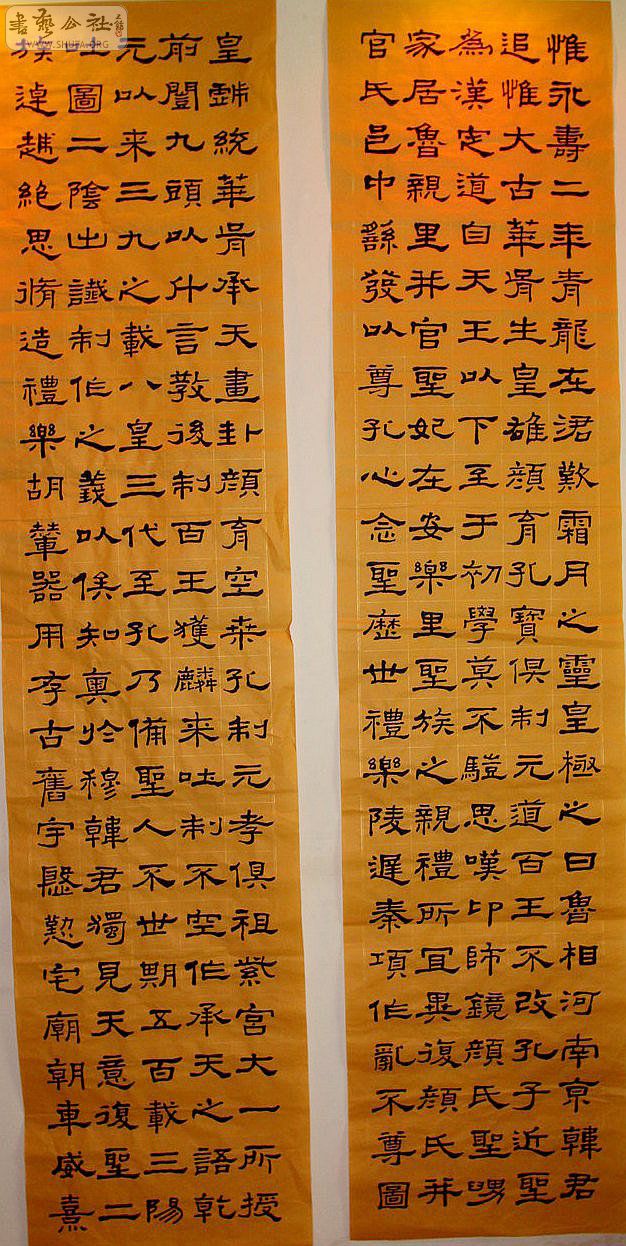 惟永壽二年青龍在涒歎霜月之靈皇極之日魯相河南京韓君
追惟大古華胥生皇雄顏育孔寶俱制元道百王不改孔子近聖
為漢定道自天王以下至于初學莫不驥思嘆卬師鏡顏氏聖舅
家居魯親里并官聖妃在安樂里聖族之親禮所宜異復顏氏并
官氏邑中繇發以尊孔心念聖歷世禮樂陵遲秦項作亂不尊圖
皇戲統華胥承天畫卦顏育空桑孔制元孝俱祖紫宮大一所授
前闓九頭以什言教後制百王獲麟来吐制不空作承天之語乾
元以来三九之載八皇三代至孔乃備聖人不世期五百載三陽
吐圖二陰出讖制作之義以俟知奧於穆韓君獨見天意復聖二
族逴越絕思脩造禮樂胡輦器用存古舊宇慇懃宅廟朝車威熹
書藝公社
WWW.SHUFA.ORG